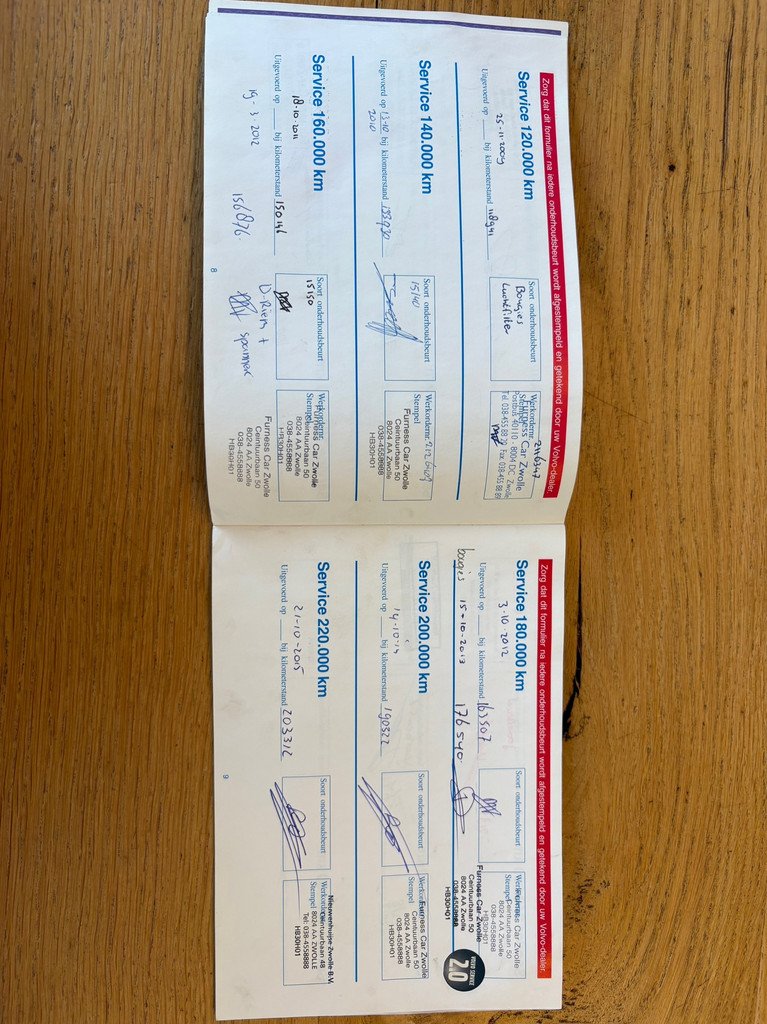 Zorg dat dit formulier na iedere onderhoudsbeurt wordt afgestempeld en getekend door uw Volvo-dealer.
Service 120.000 km
25-11-2009
Uitgevoerd op ____ bij kilometerstand 118941
Soort onderhoudsbeurt
Bougies
Luchtfilter
Werkordernr. 2116347
Stempel
Furness Car Zwolle
Postbus 40110 - 8004 DC Zwolle
Tel. 038-455 88 39 Fax 038-455 88 89
Service 140.000 km
Uitgevoerd op 13-10 bij kilometerstand 133930
2010
Soort onderhoudsbeurt
15/40
Werkordernr. 2126409
Stempel
Furness Car Zwolle
Ceintuurbaan 50
8024 AA Zwolle
038-4558888
HB30H01
Service 160.000 km
18-10-2011
Uitgevoerd op ____ bij kilometerstand 150146
19-3-2012
156876
Soort onderhoudsbeurt
15150
D-Riem +
spanner
Werkordernr.
Stempel
Furness Car Zwolle
Ceintuurbaan 50
8024 AA Zwolle
038-4558888
HB30H01
Furness Car Zwolle
Ceintuurbaan 50
8024 AA Zwolle
038-4558888
HB30H01
8
Zorg dat dit formulier na iedere onderhoudsbeurt wordt afgestempeld en getekend door uw Volvo-dealer.
Service 180.000 km
3-10-2012
Uitgevoerd op ____ bij kilometerstand 163507
bougies 15-10-2013 176540
Soort onderhoudsbeurt
Werkordernr.
Stempel
Furness Car Zwolle
Ceintuurbaan 50
8024 AA Zwolle
038-4558888
HB30H01
Furness Car Zwolle
Ceintuurbaan 50
8024 AA Zwolle
038-4558888
HB30H01
VOLVO SERVICE
2.0
Service 200.000 km
14-10-14
Uitgevoerd op ____ bij kilometerstand 190322
Soort onderhoudsbeurt
Werkordernr.
Stempel
Furness Car Zwolle
Ceintuurbaan 50
8024 AA Zwolle
038-4558888
HB30H01
Service 220.000 km
21-10-2015
Uitgevoerd op ____ bij kilometerstand 203312
Soort onderhoudsbeurt
Werkordernr.
Stempel
Nieuwenhuijse Zwolle B.V.
Ceintuurbaan 48
8024 AA ZWOLLE
Tel: 038-4558888
HB30H01
9